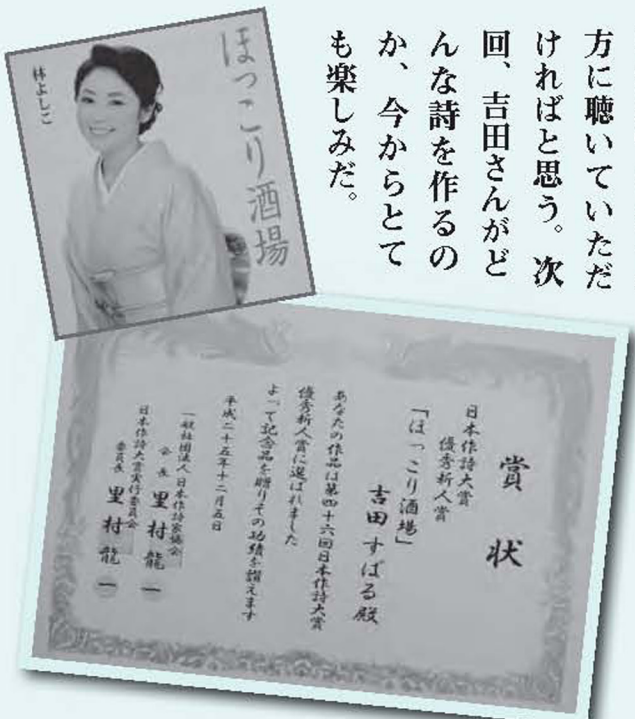 方に聴いていただ
ければと思う。次
回、吉田さんがど
んな詩を作るの
か、今からとて
も楽しみだ。
ほっこり酒場
林よしこ
賞状
日本作詩大賞
優秀新人賞
「ほっこり酒場」
吉田すばる殿
あなたの作品は第四十六回日本作詩大賞
優秀新人賞に選ばれました
よって記念品を贈りその功績を讃えます
平成二十五年十二月五日
一般社団法人日本作詩家協会
会長 里村龍一
日本作詩大賞実行委員会
委員長 里村龍一